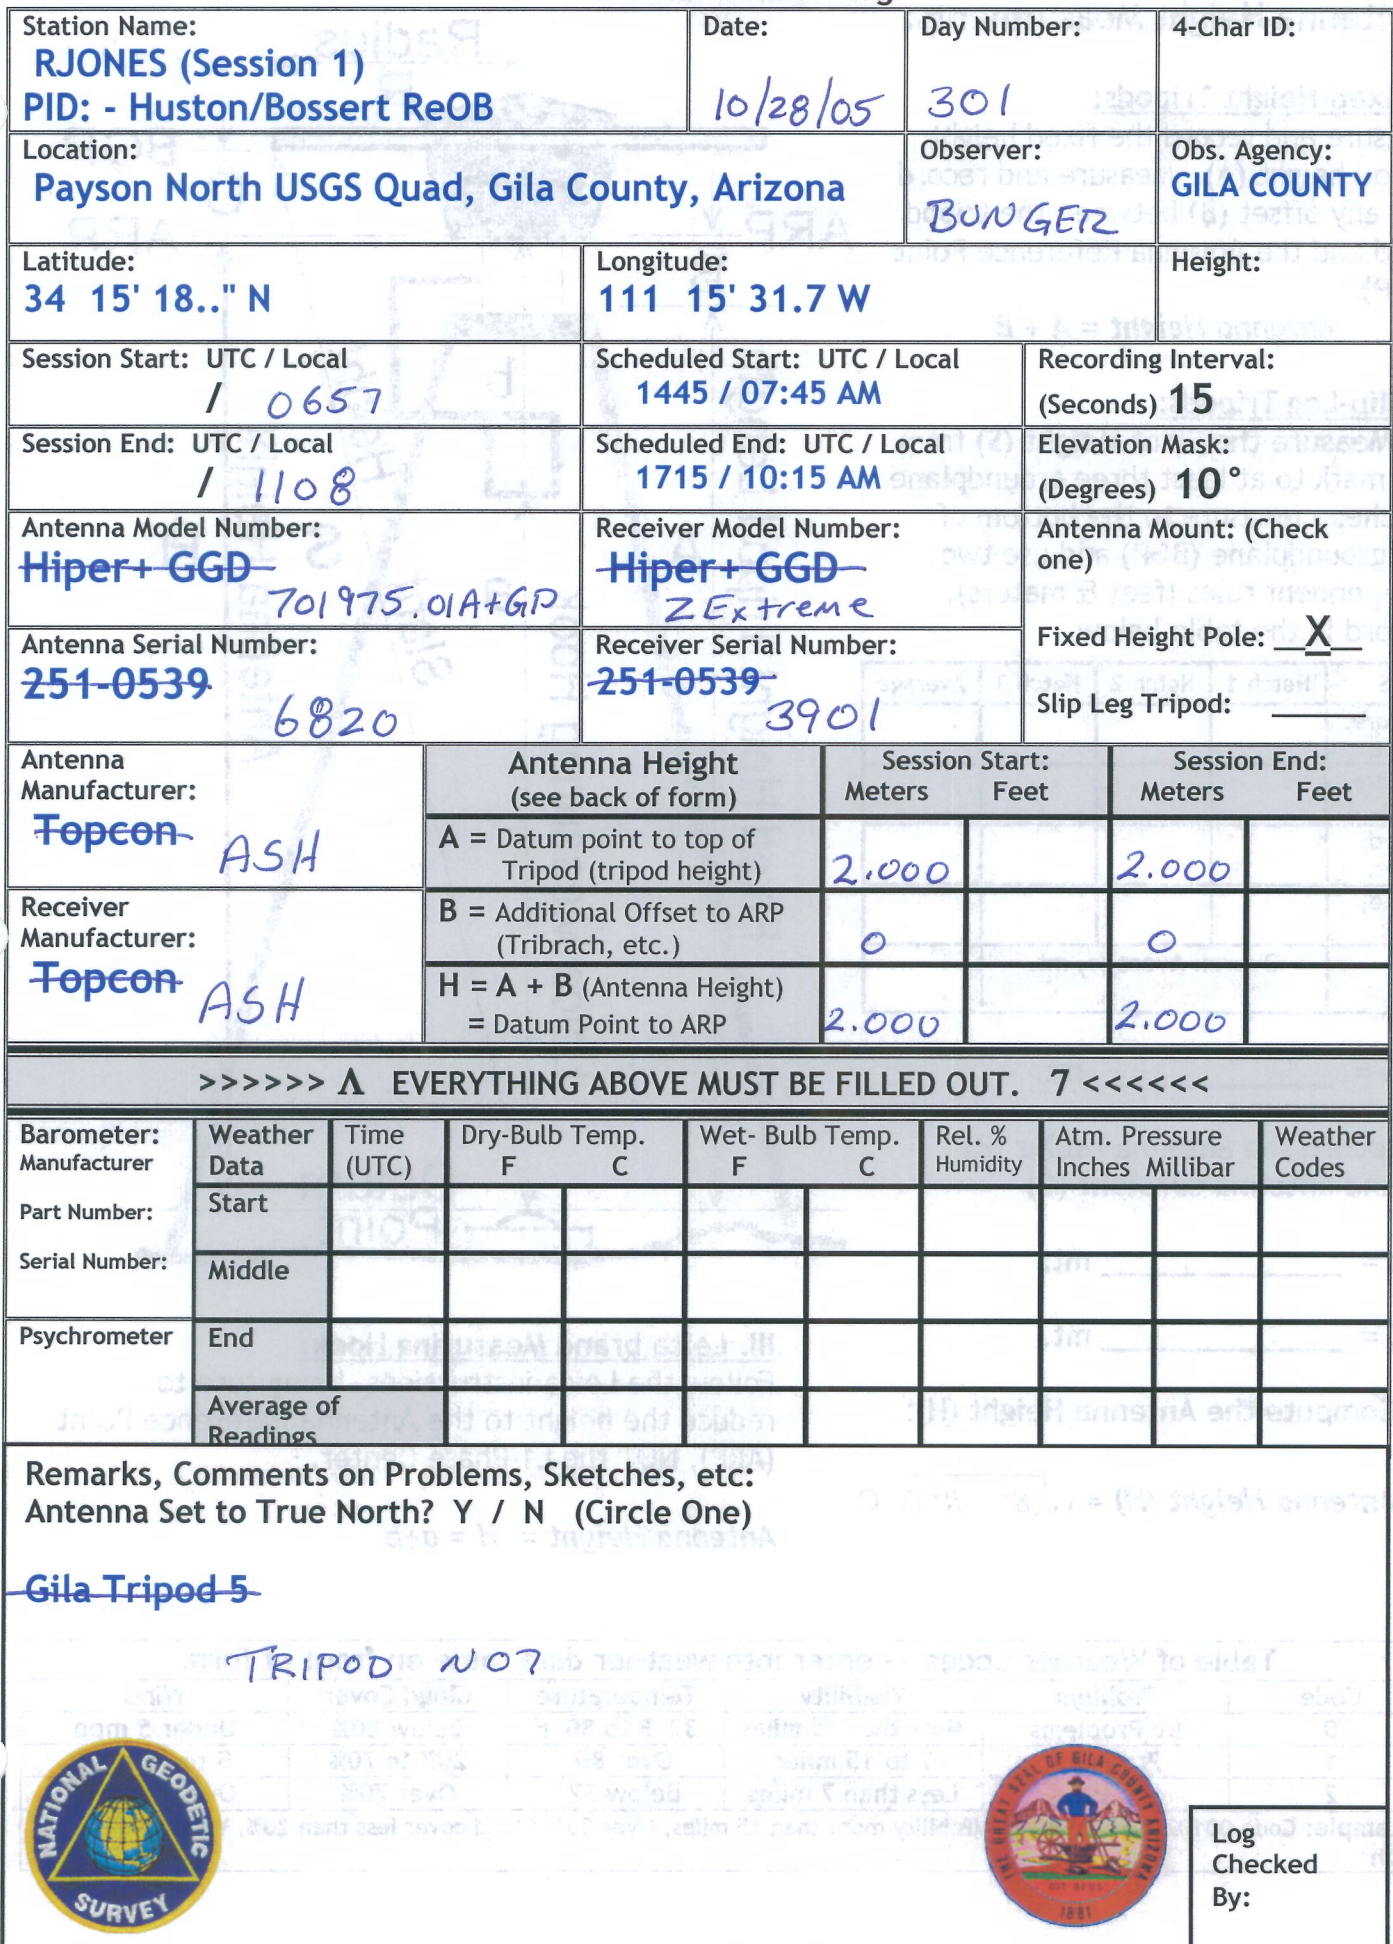 Station Name:
RJONES (Session 1)
PID: - Huston/Bossert ReOB
Date:
10/28/05
Day Number:
301
4-Char ID:
Location:
Payson North USGS Quad, Gila County, Arizona
Observer:
BUNGER
Obs. Agency:
GILA COUNTY
Latitude:
34 15' 18.." N
Longitude:
111 15' 31.7 W
Height:
Session Start: UTC / Local
/ 0657
Scheduled Start: UTC / Local
1445 / 07:45 AM
Recording Interval:
(Seconds) 15
Session End: UTC / Local
/ 1108
Scheduled End: UTC / Local
1715 / 10:15 AM
Elevation Mask:
(Degrees) 10°
Antenna Model Number:
Hiper+ GGD
701975.01A+GP
Receiver Model Number:
Hiper+ GGD
ZExtreme
Antenna Mount: (Check
one)
Fixed Height Pole: __X__
Slip Leg Tripod: ______
Antenna Serial Number:
251-0539
6820
Receiver Serial Number:
251-0539
3901
Antenna
Manufacturer:
Topcon
ASH
Receiver
Manufacturer:
Topcon
ASH
Antenna Height
(see back of form)
Session Start:
Meters Feet
Session End:
Meters Feet
A = Datum point to top of
Tripod (tripod height)
2.000 2.000
B = Additional Offset to ARP
(Tribrach, etc.)
0 0
H = A + B (Antenna Height)
= Datum Point to ARP
2.000 2.000
>>>>>> Λ EVERYTHING ABOVE MUST BE FILLED OUT. 7 <<<<<<
Barometer:
Manufacturer
Part Number:
Serial Number:
Psychrometer
Weather
Data
Time
(UTC)
Dry-Bulb Temp.
F C
Wet- Bulb Temp.
F C
Rel. %
Humidity
Atm. Pressure
Inches Millibar
Weather
Codes
Start
Middle
End
Average of
Readings
Remarks, Comments on Problems, Sketches, etc:
Antenna Set to True North? Y / N (Circle One)
Gila Tripod 5
TRIPOD NO7
NATIONAL GEODETIC SURVEY
THE GREAT SEAL OF GILA COUNTY ARIZONA
1881
Log
Checked
By: